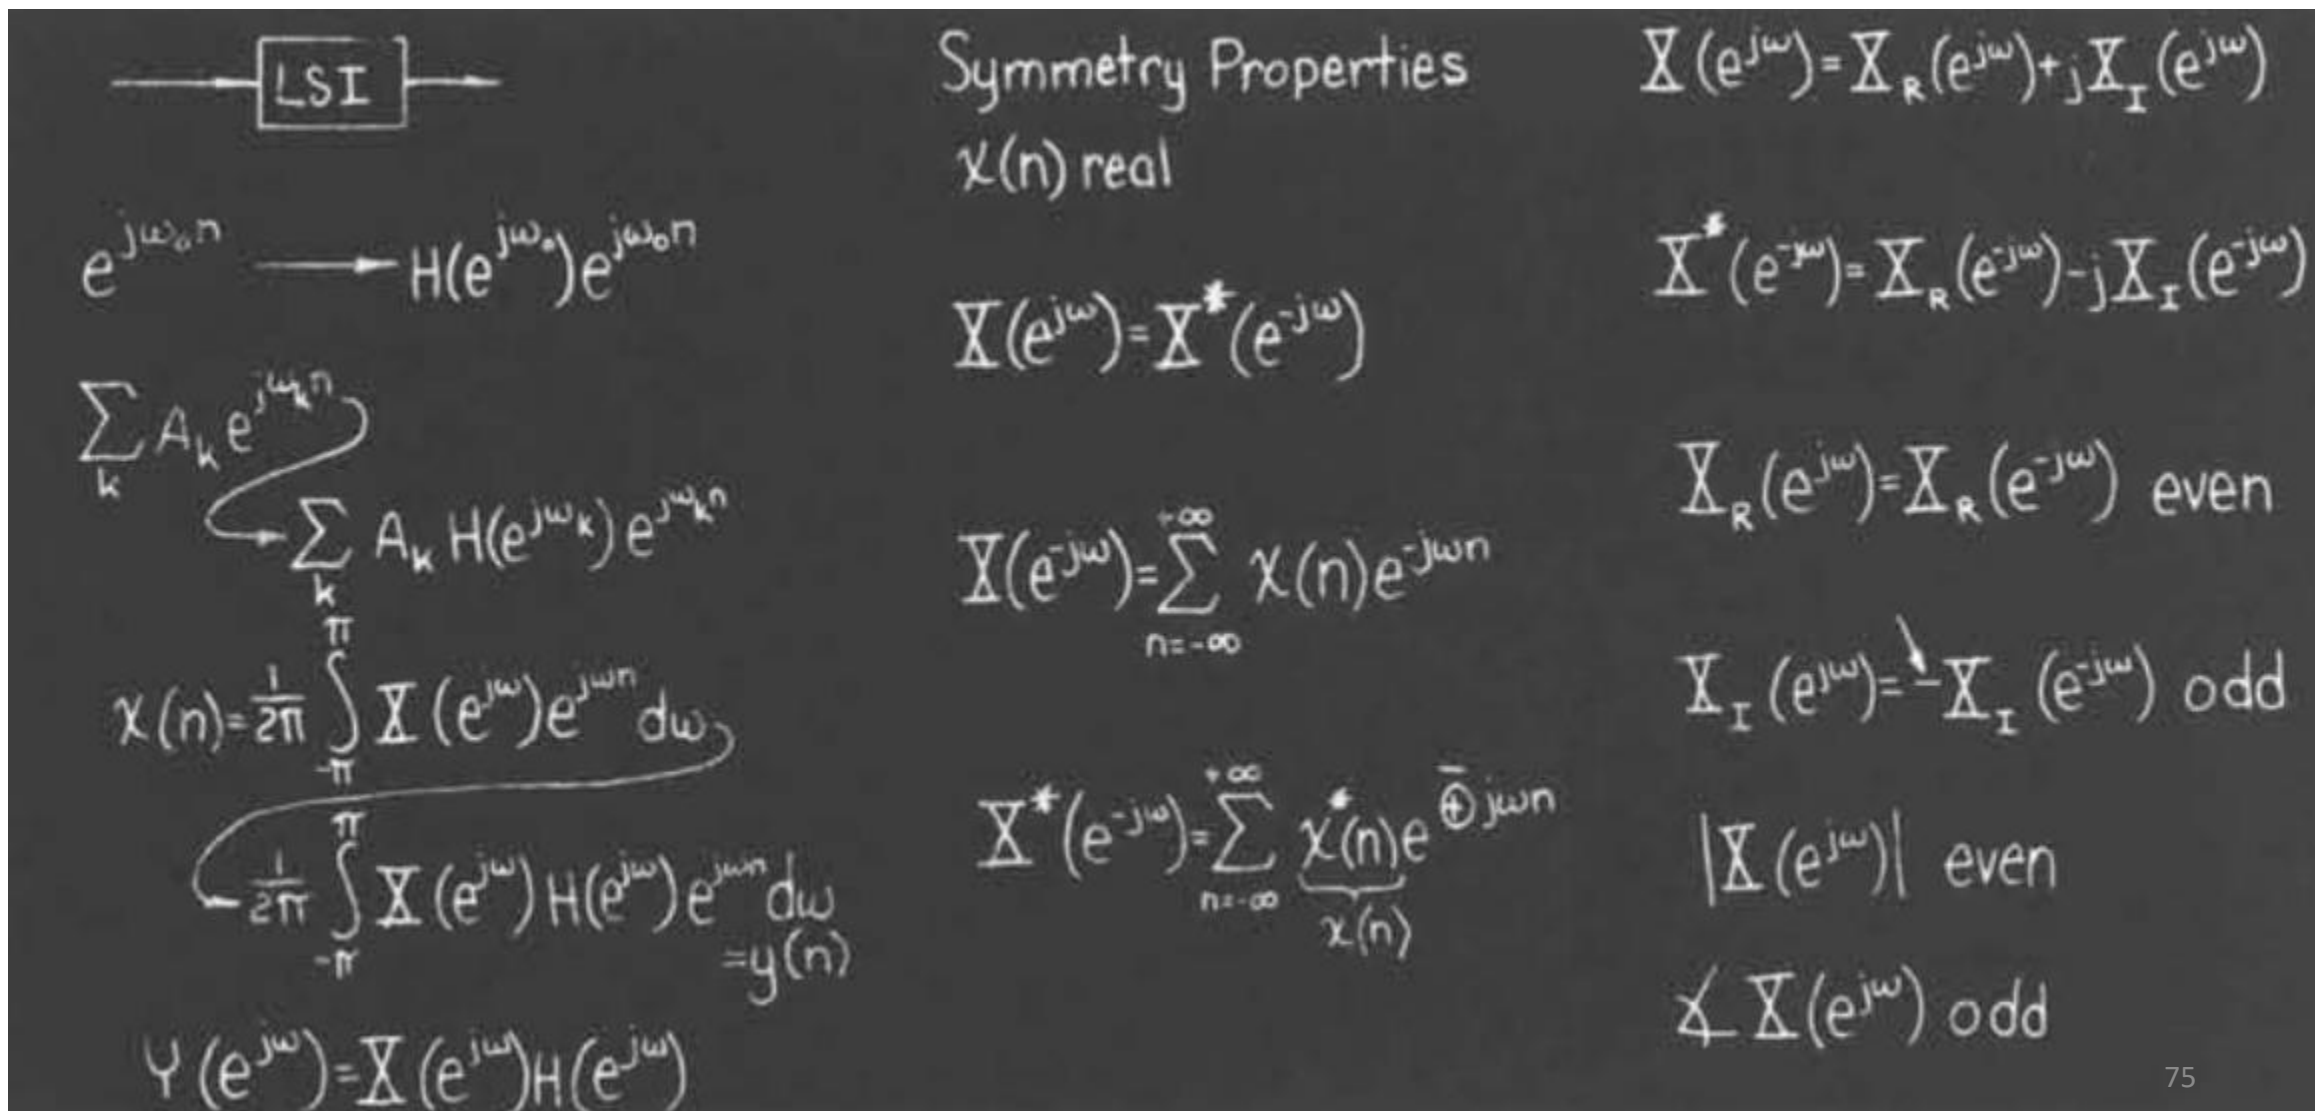 LSI
e^{jω₀n} → H(e^{jω₀})e^{jω₀n}
∑_k A_k e^{jω_k n}
∑_k A_k H(e^{jω_k}) e^{jω_k n}
x(n)= 1/2π ∫_{-π}^{π} X(e^{jω})e^{jωn} dω
1/2π ∫_{-π}^{π} X(e^{jω}) H(e^{jω}) e^{jωn} dω
=y(n)
Y(e^{jω})=X(e^{jω})H(e^{jω})
Symmetry Properties
x(n) real
X(e^{jω})=X*(e^{-jω})
X(e^{-jω})=∑_{n=-∞}^{+∞} x(n)e^{-jωn}
X*(e^{-jω})=∑_{n=-∞}^{+∞} x*(n)e^{-⊕jωn}
x(n)
X(e^{jω})=X_R(e^{jω})+jX_I(e^{jω})
X*(e^{-jω})=X_R(e^{-jω})-jX_I(e^{-jω})
X_R(e^{jω})=X_R(e^{-jω}) even
X_I(e^{jω})=-X_I(e^{-jω}) odd
|X(e^{jω})| even
∡ X(e^{jω}) odd
75